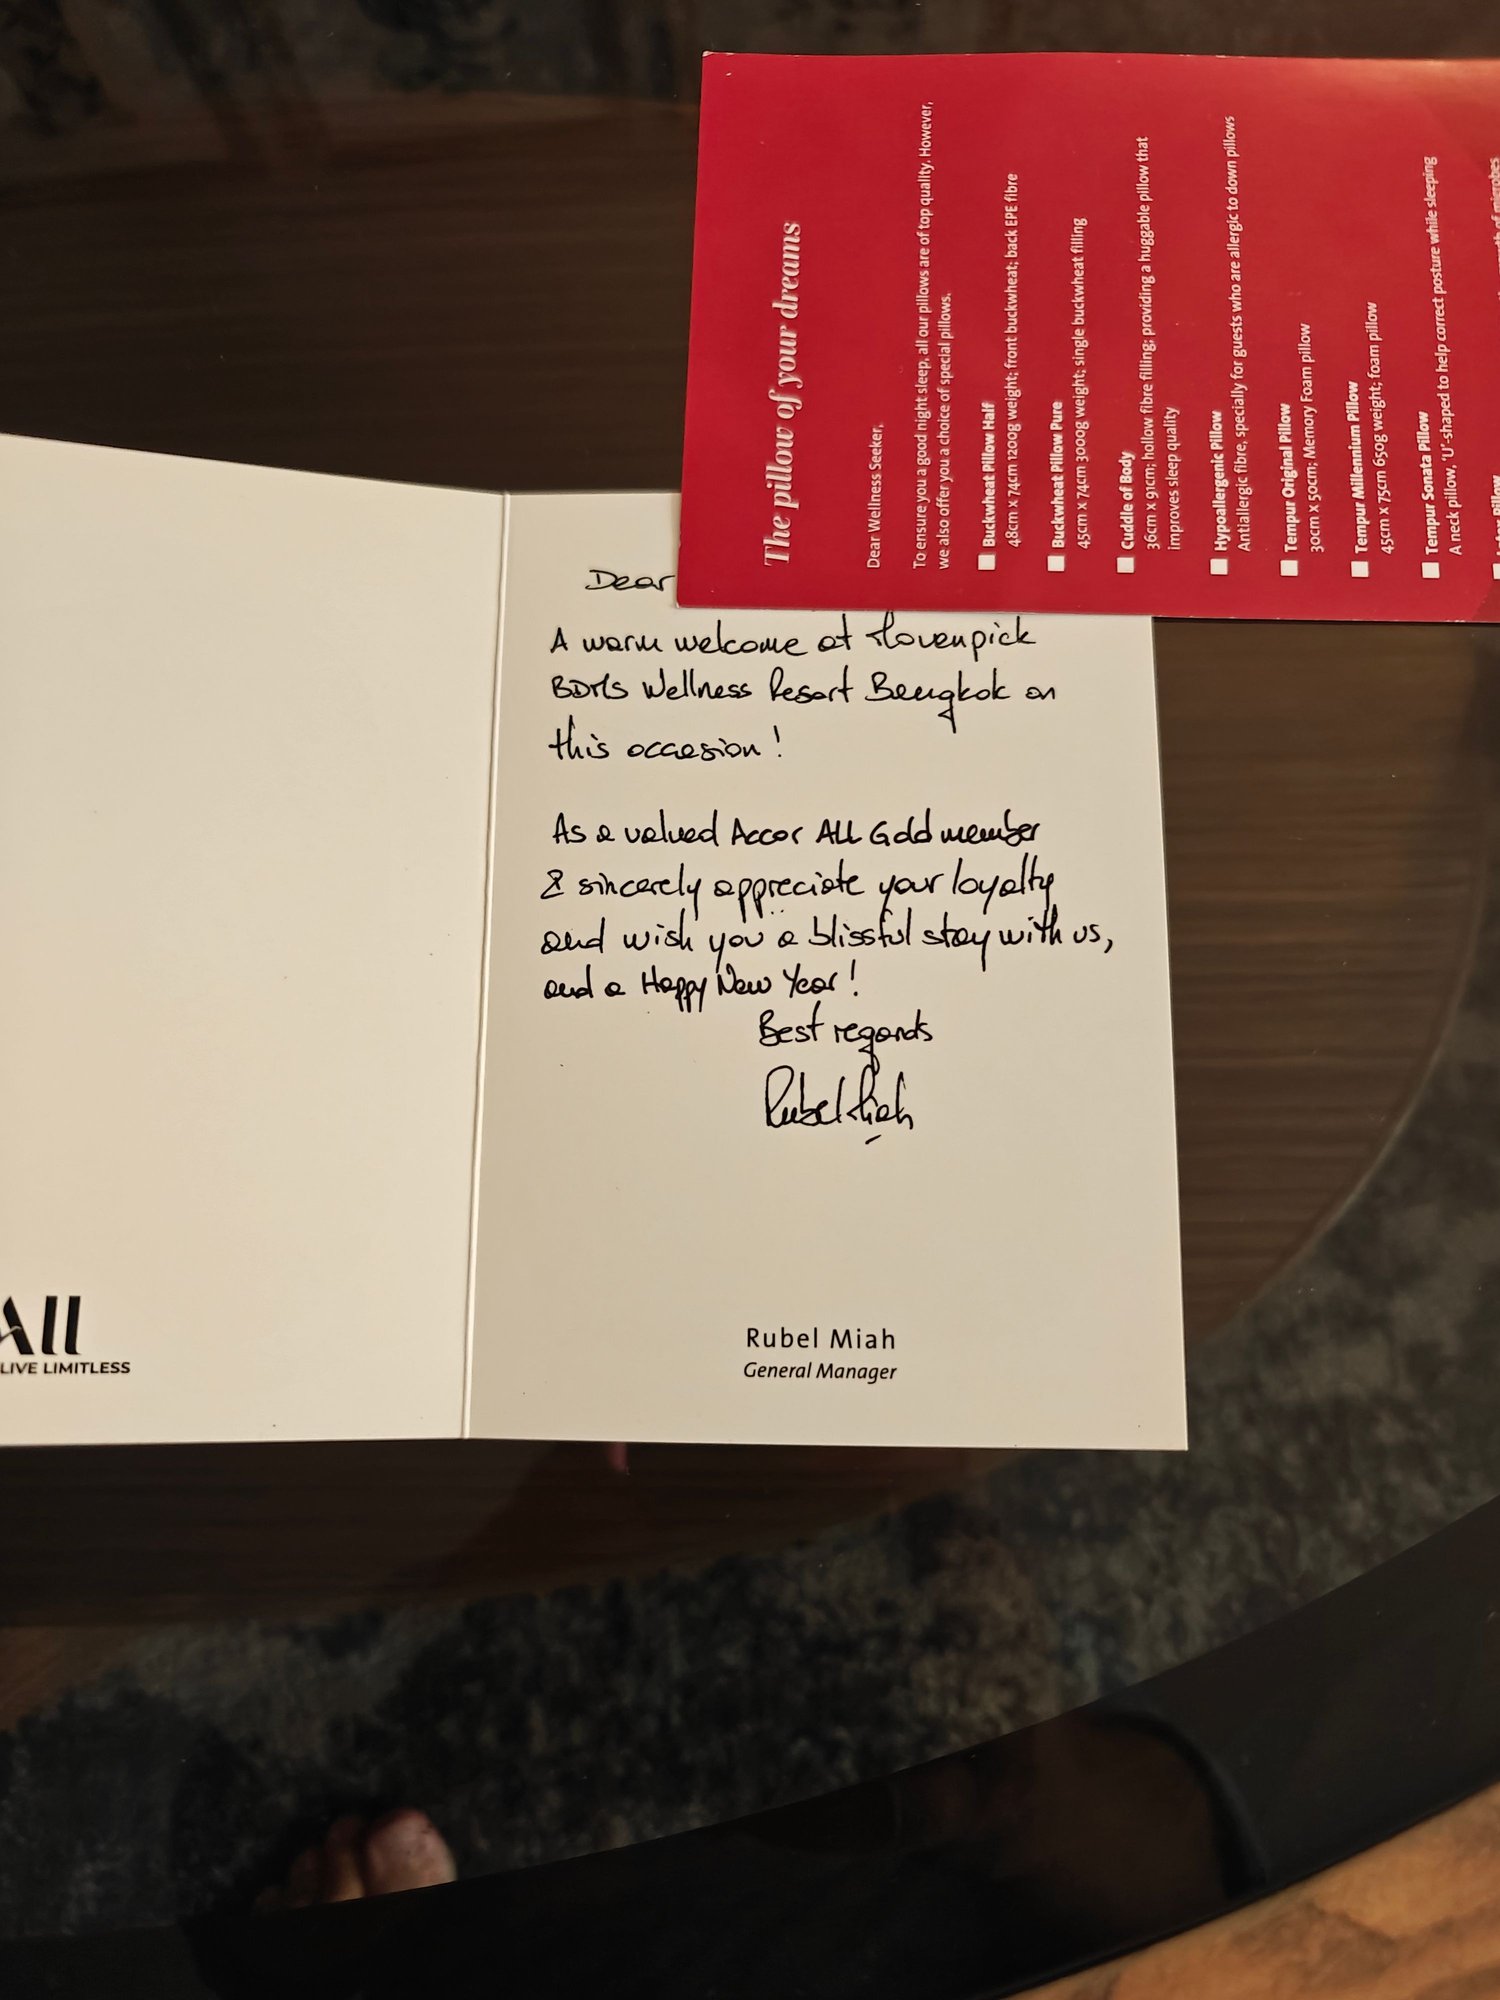 Dear
A warm welcome at Movenpick
BDMS Wellness Resort Bangkok on
this occasion!
As a valued Accor ALL Gold member
I sincerely appreciate your loyalty
and wish you a blissful stay with us,
and a Happy New Year!
Best regards
Rubel Miah
Rubel Miah
General Manager
All
LIVE LIMITLESS
The pillow of your dreams
Dear Wellness Seeker,
To ensure you a good night sleep, all our pillows are of top quality. However,
we also offer you a choice of special pillows.
Buckwheat Pillow Half
48cm x 74cm 1200g weight; front buckwheat; back EPE fibre
Buckwheat Pillow Pure
45cm x 74cm 3000g weight; single buckwheat filling
Cuddle of Body
36cm x 91cm; hollow fibre filling; providing a huggable pillow that
improves sleep quality
Hypoallergenic Pillow
Antiallergic fibre, specially for guests who are allergic to down pillows
Tempur Original Pillow
30cm x 50cm; Memory Foam pillow
Tempur Millennium Pillow
45cm x 75cm 650g weight; foam pillow
Tempur Sonata Pillow
A neck pillow, 'U'-shaped to help correct posture while sleeping
Pillow
of microbes